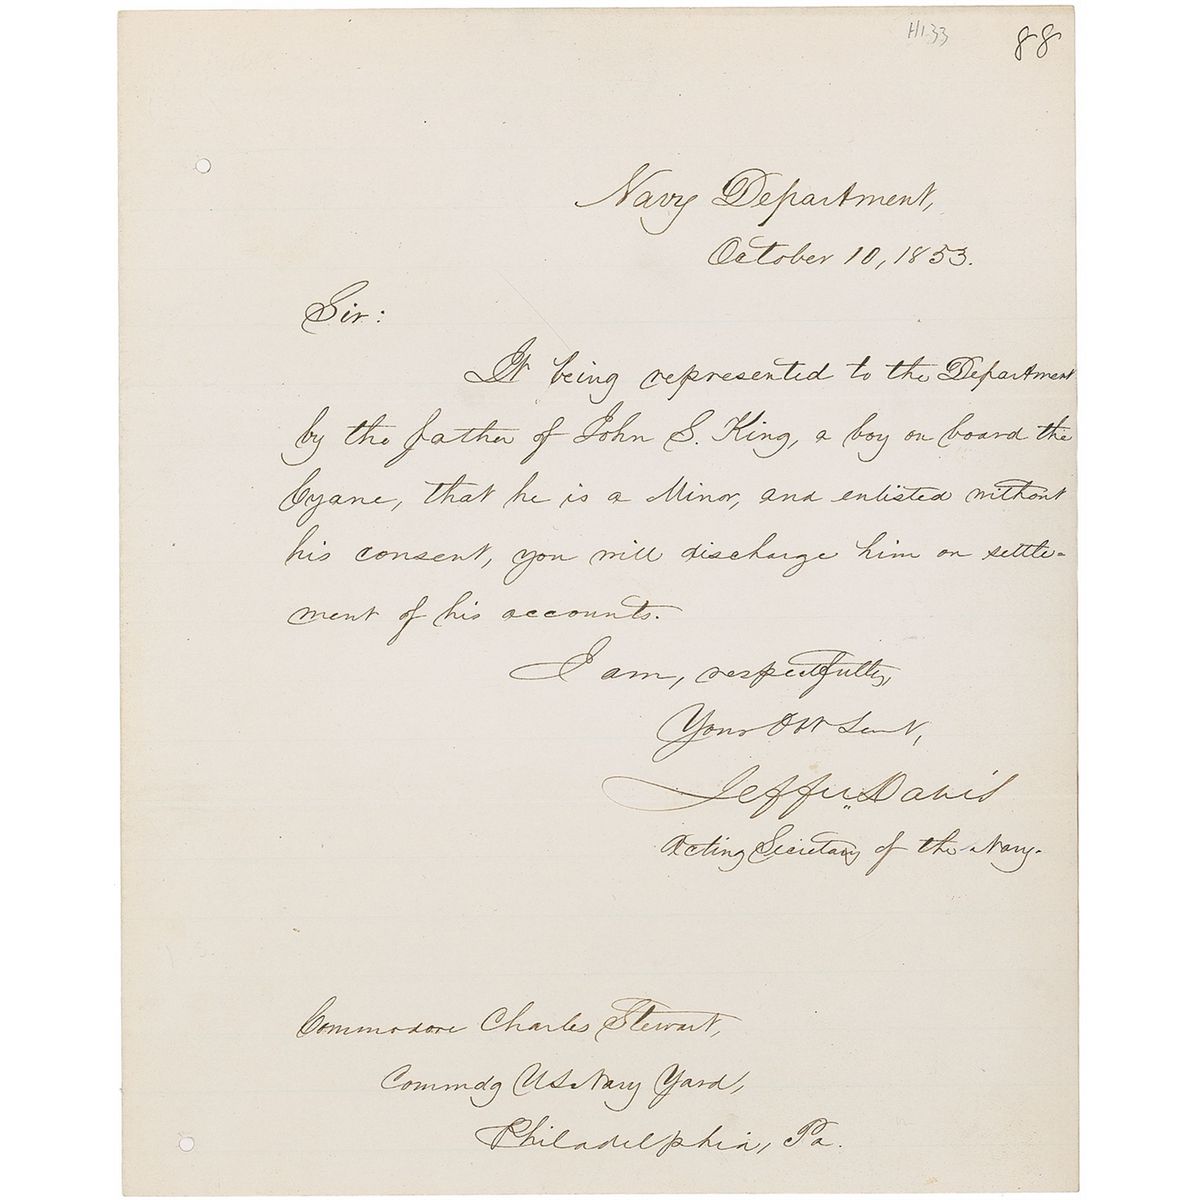 H1.33
88
Navy Department,
October 10, 1853.
Sir:
It being represented to the Department
by the father of John S. King, a boy on board the
Cyane, that he is a Minor, and enlisted without
his consent, you will discharge him on settle-
ment of his accounts.
I am, respectfully,
Your Obt Servt,
Jeffn. Davis
Acting Secretary of the Navy.
Commodore Charles Stewart,
Commdg US Navy Yard,
Philadelphia, Pa.